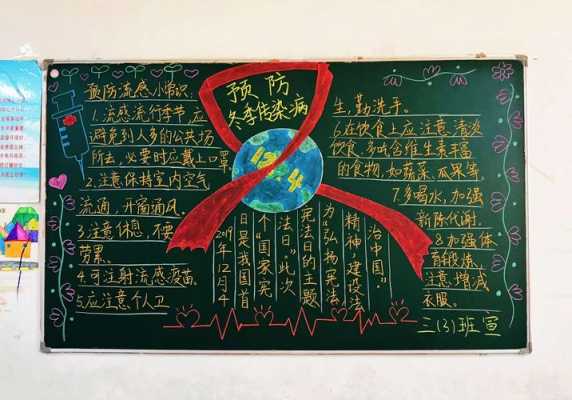 预防
冬季传染病
预防流感小常识.
1.流感流行季节,应
避免到人多的公共场
所去,必要时应戴上口罩.
2.注意保持室内空气
流通,开窗通风.
3.注意休息,不要
劳累.
4.可注射流感疫苗.
5.应注意个人卫
生,勤洗手.
6.在饮食上应注意清淡
饮食,多吃含维生素丰富
的食物,如蔬菜,瓜果等.
7.多喝水,加强
新陈代谢.
8.加强体
育锻炼,
注意增减
衣服.
12.4
2019年12月4
日是我国首
个“国家宪
法日”此次
宪法日的主题
为“弘扬宪法
精神,建设法
治中国”
三(3)班宣